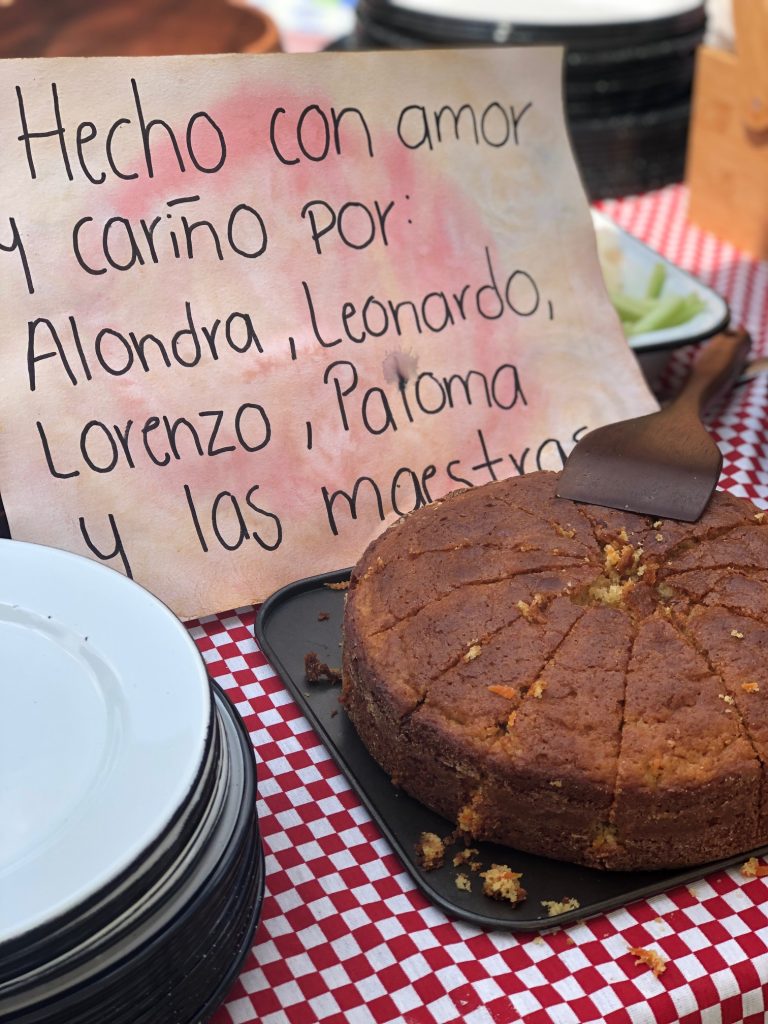 Hecho con amor
y cariño por:
Alondra, Leonardo,
Lorenzo, Paloma
y las maestras